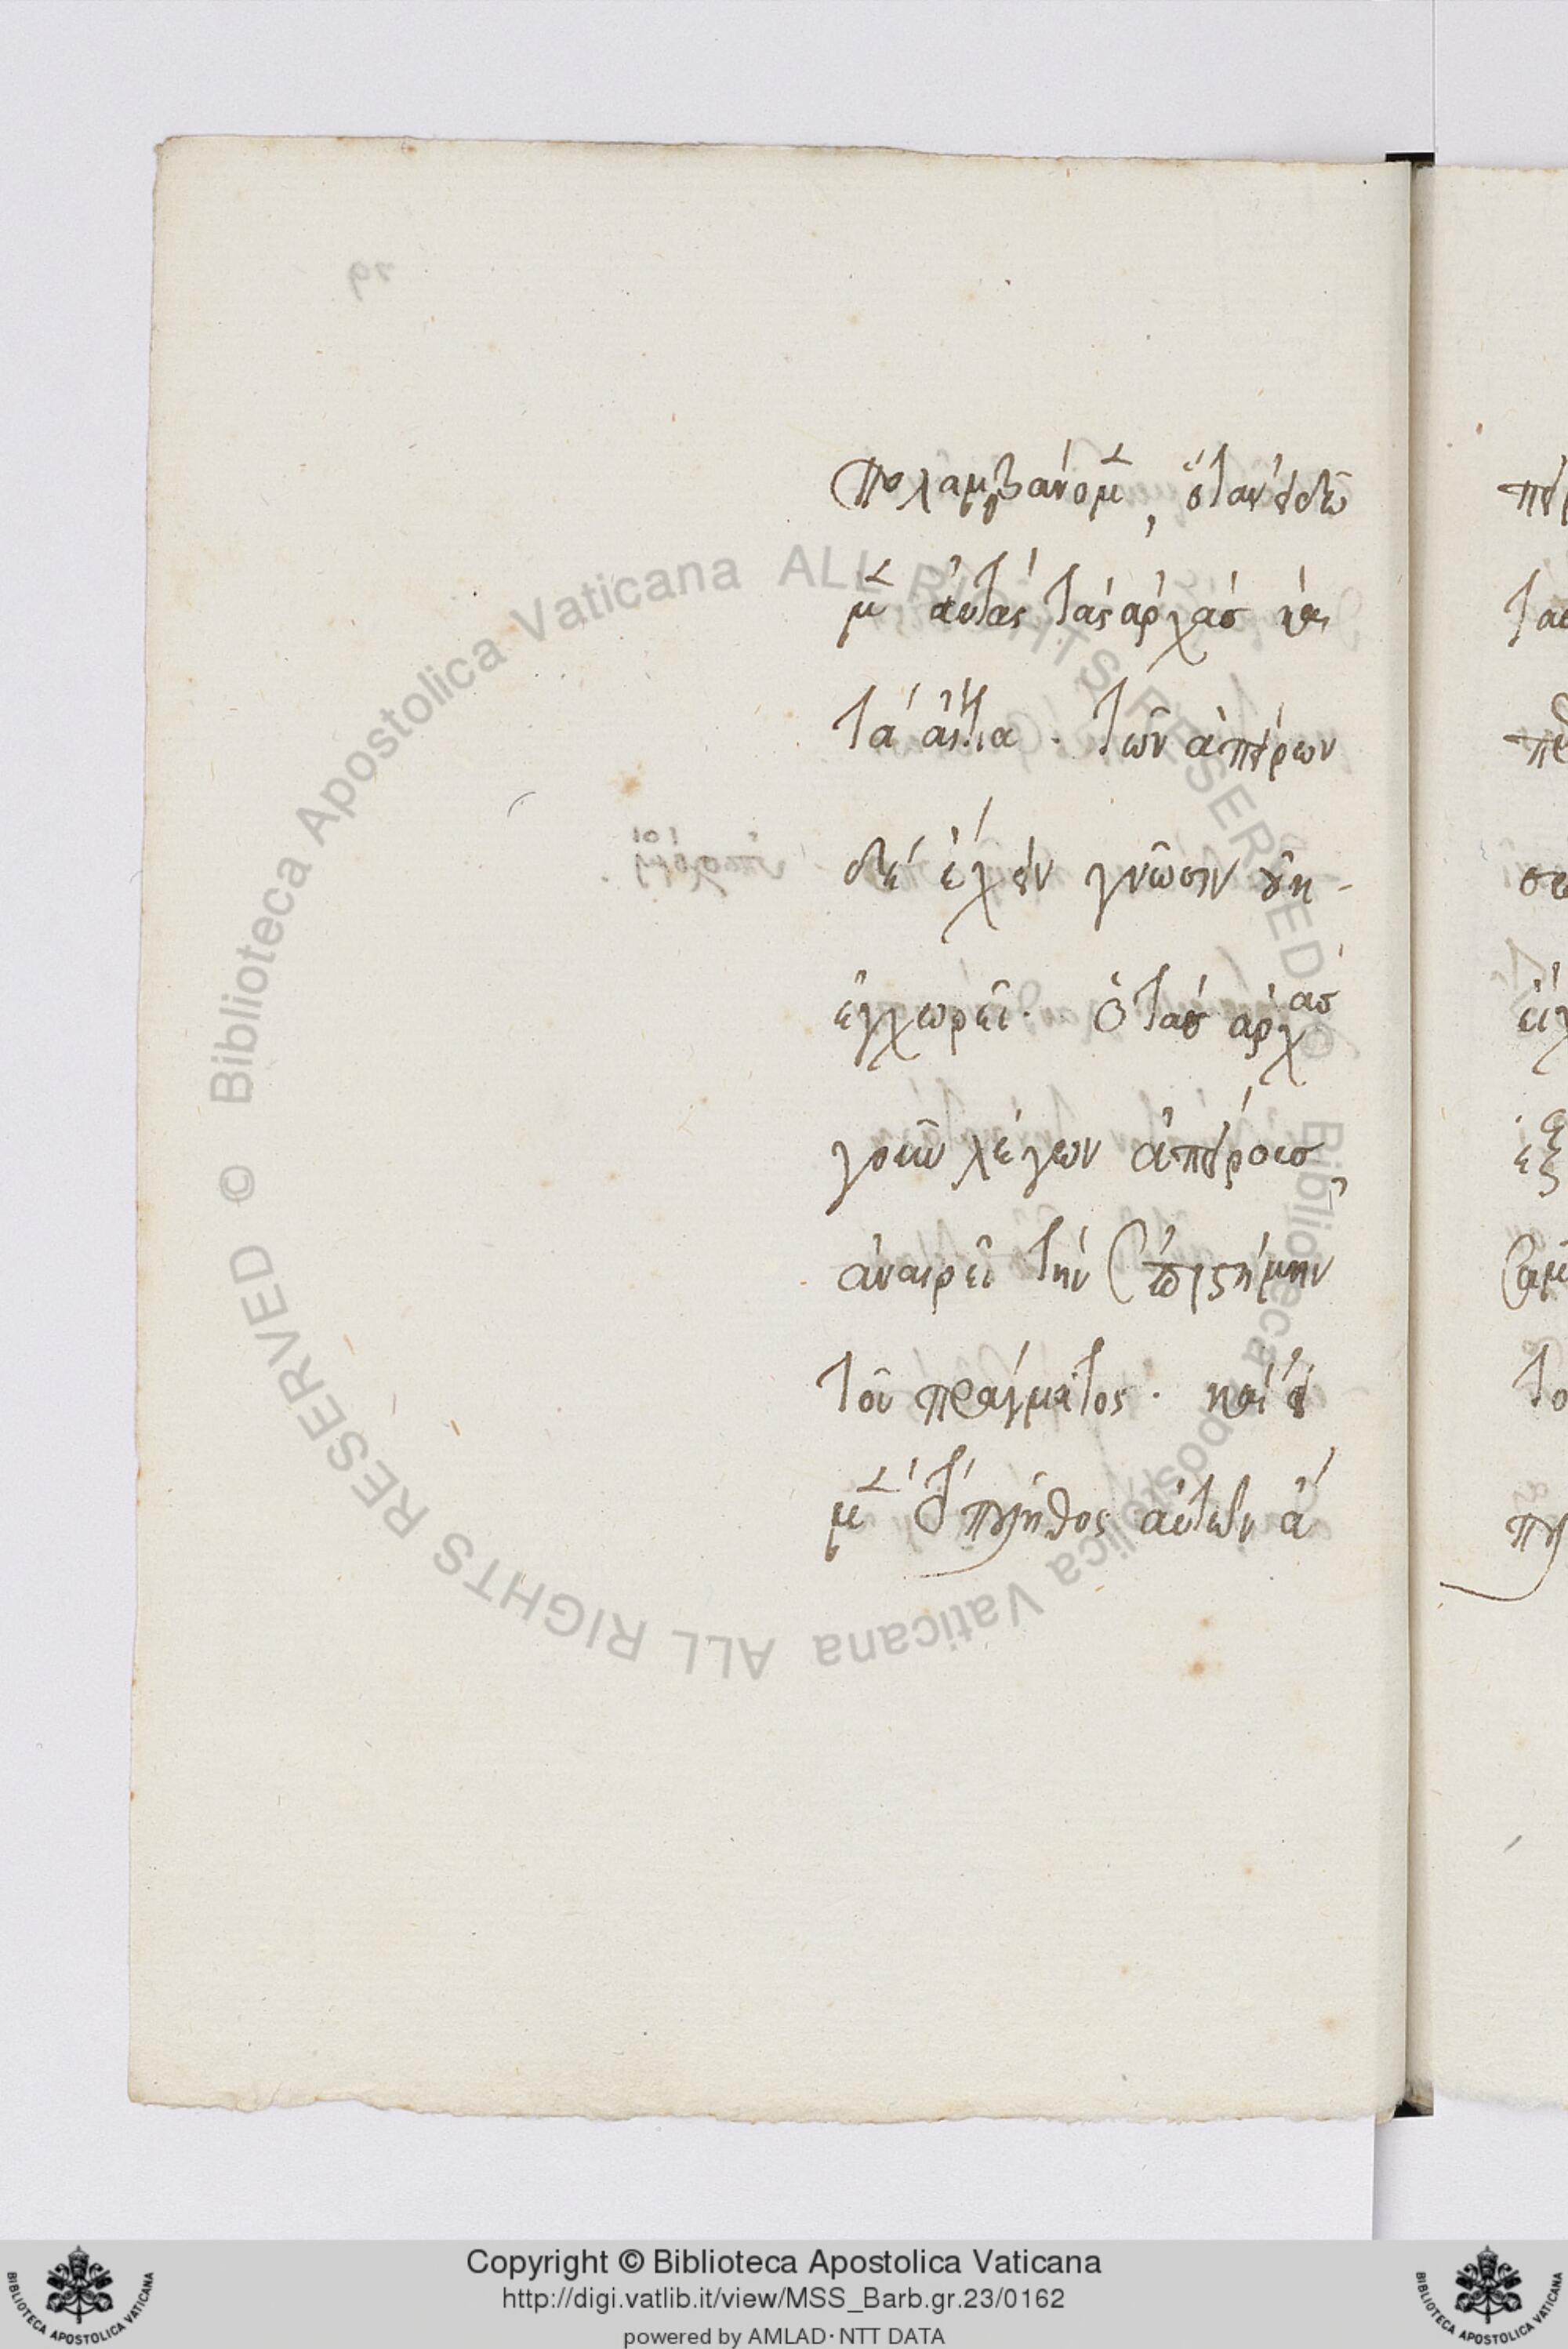 πολαμβάνομεν, ὅταν εἰδῶ
μεν αὐτὰς τὰς ἀρχὰς καὶ
τὰ αἴτια. τῶν ἀπείρων
δὲ ἔχειν γνῶσιν οὐκ
ἐγχωρεῖ. ὁ τὰς ἀρχὰς
γοῦν λέγων ἀπείρους,
ἀναιρεῖ τὴν ἐπιστήμην
τοῦ πράγματος. καὶ εἰ
μὲν τὸ πλῆθος αὐτῶν ἄ
© Biblioteca Apostolica Vaticana ALL RIGHTS RESERVED
© Biblioteca Apostolica Vaticana ALL RIGHTS RESERVED
Copyright © Biblioteca Apostolica Vaticana
http://digi.vatlib.it/view/MSS_Barb.gr.23/0162
powered by AMLAD·NTT DATA
BIBLIOTECA APOSTOLICA VATICANA
BIBLIOTECA APOSTOLICA VATICANA